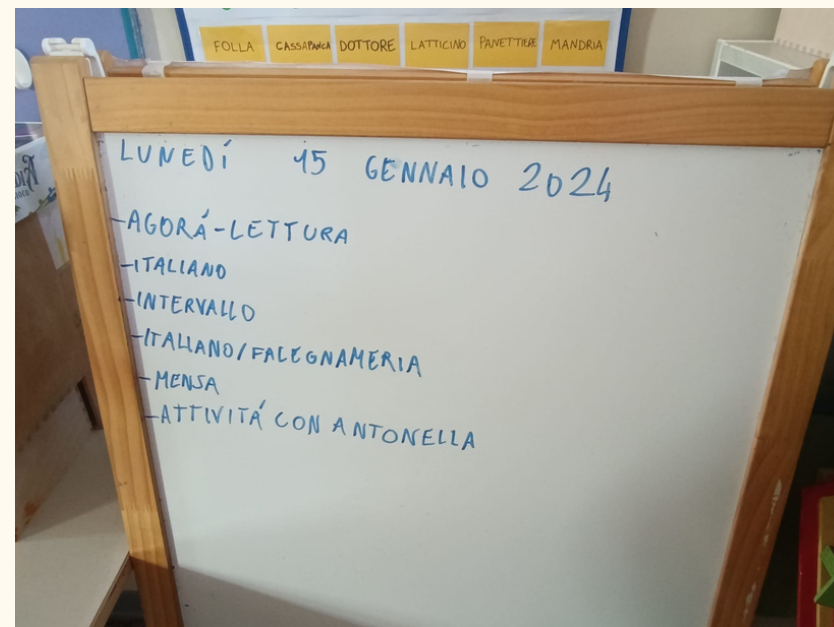 FOLLA CASSAPANCA DOTTORE LATTICINO PANETTIERE MANDRIA
LUNEDÍ 15 GENNAIO 2024
-AGORÁ-LETTURA
-ITALIANO
-INTERVALLO
-ITALIANO/FALEGNAMERIA
-MENSA
-ATTIVITÁ CON ANTONELLA